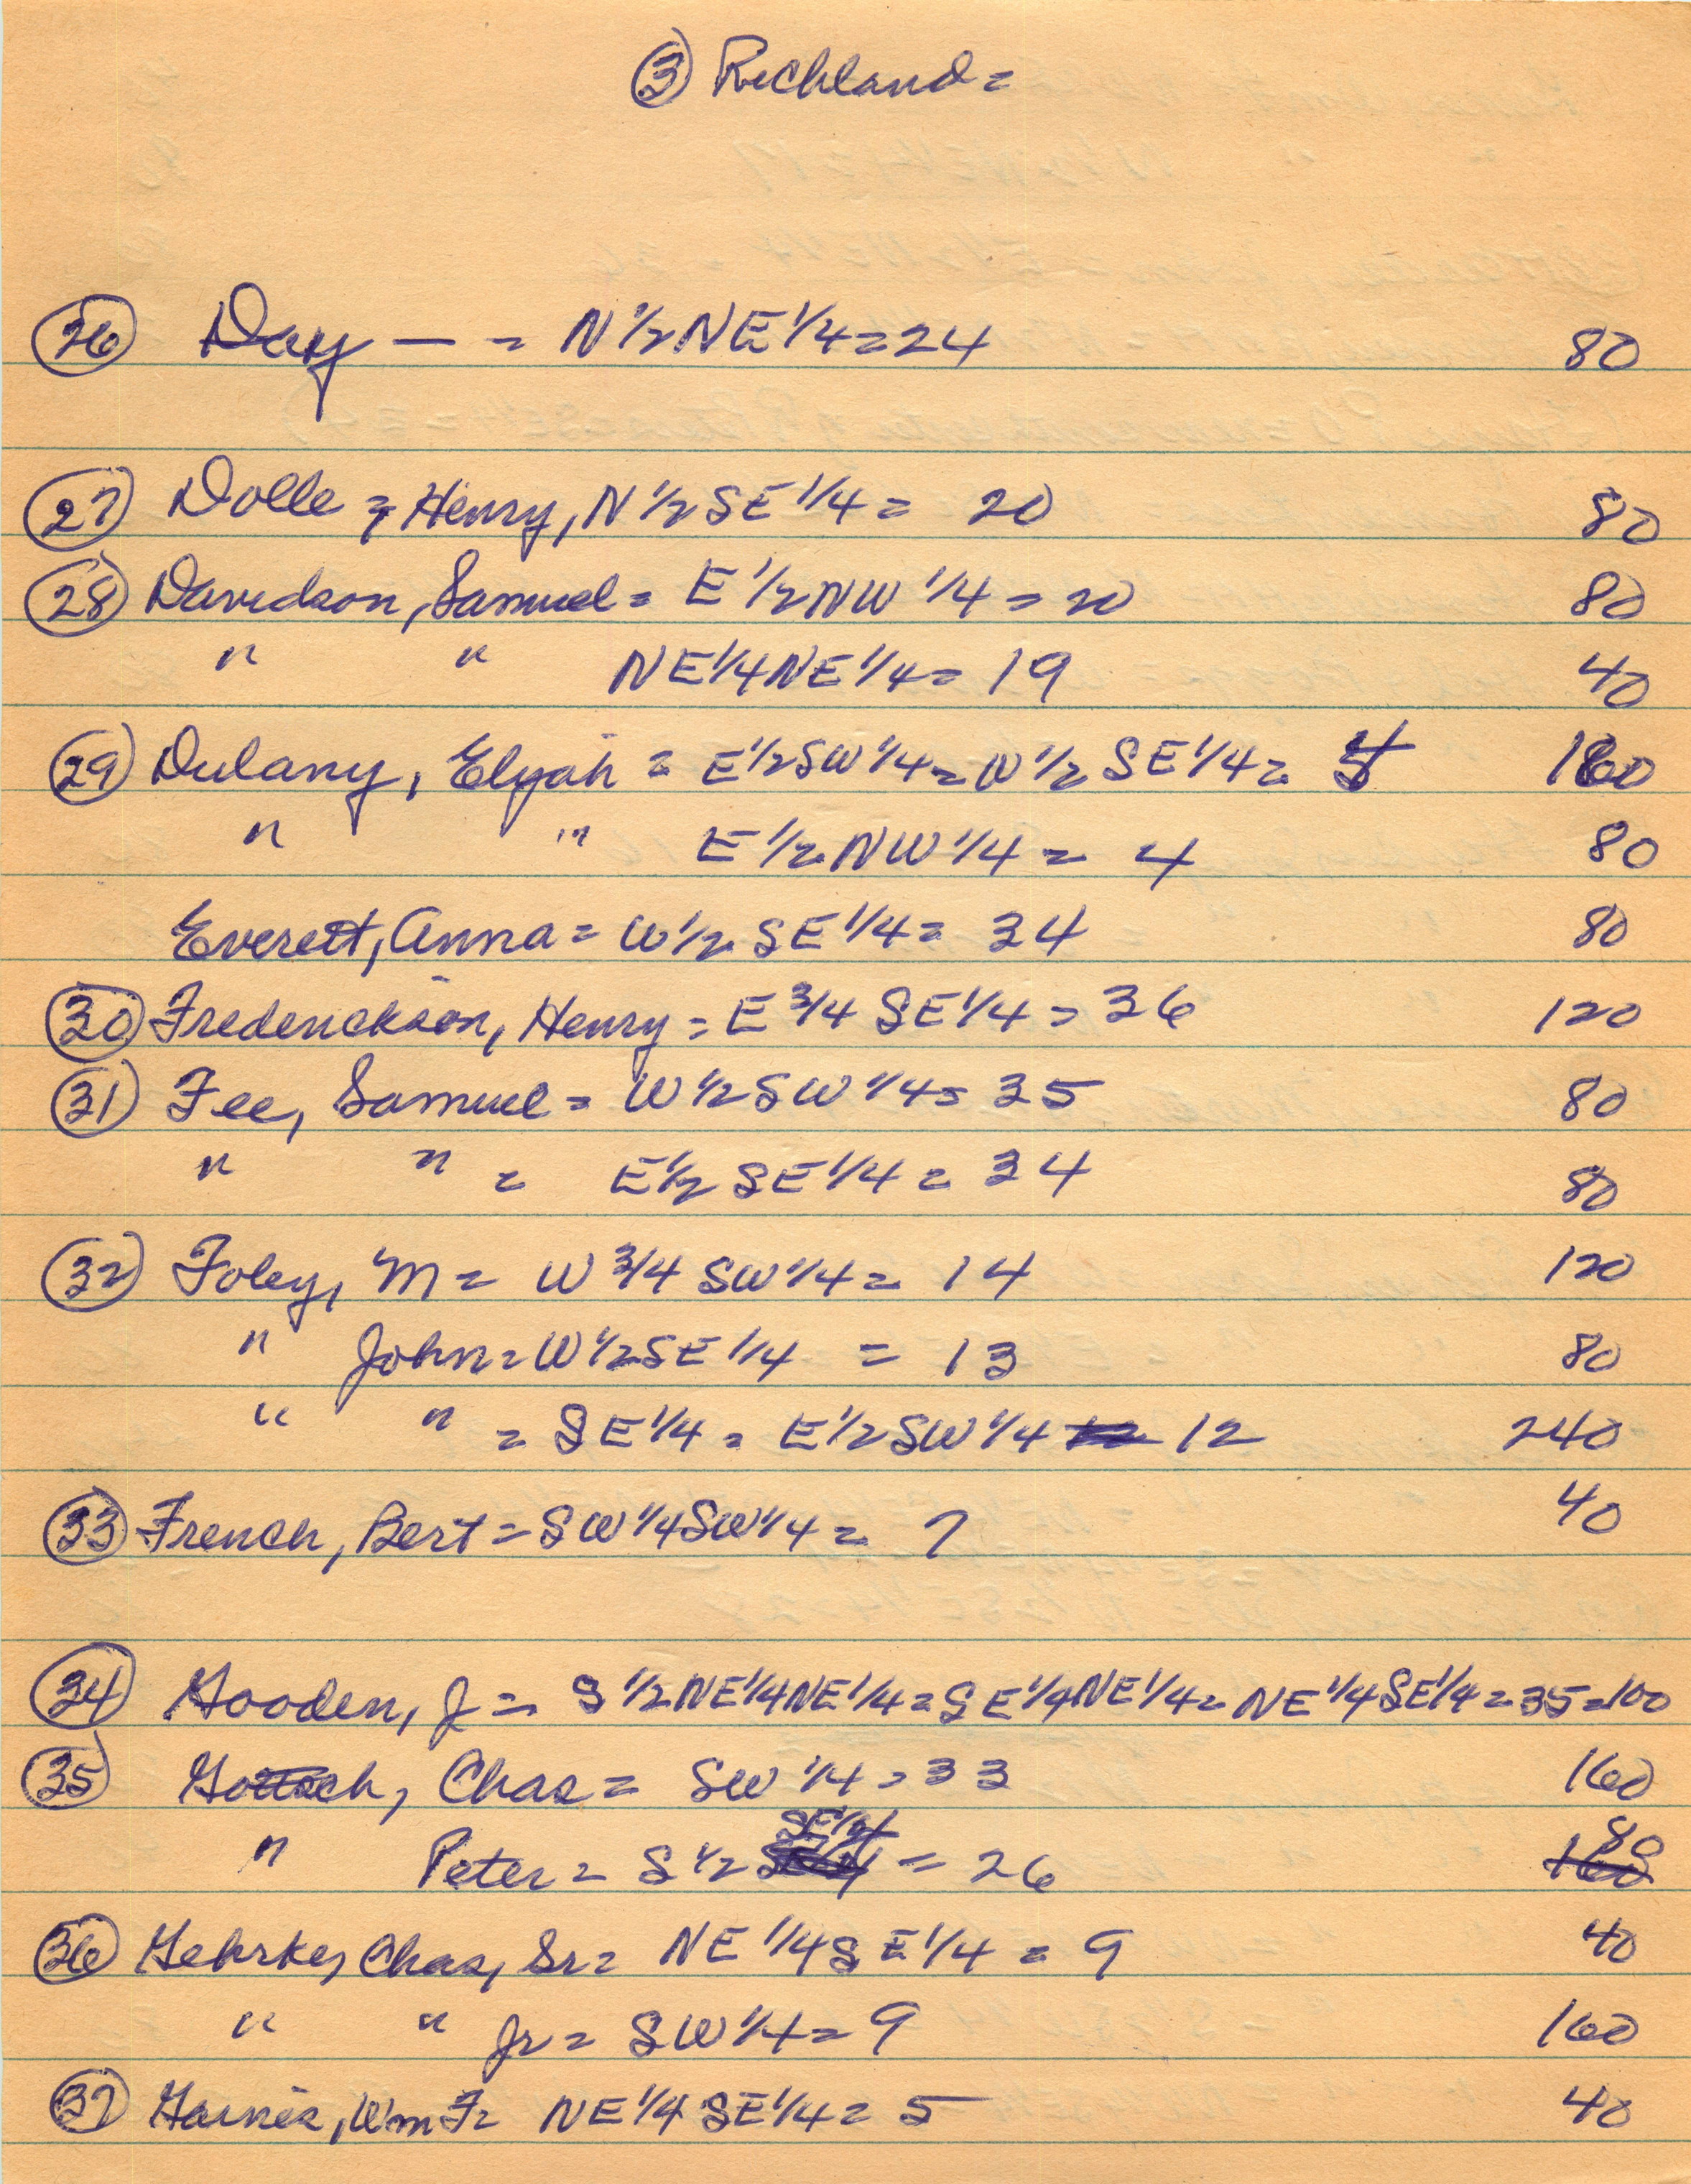 ③ Richland =
㉖ Day — = N 1/2 NE 1/4 = 24 80
㉗ Dolle = Henry, N 1/2 SE 1/4 = 20 80
㉘ Davidson, Samuel = E 1/2 NW 1/4 = 20 80
" " NE 1/4 NE 1/4 = 19 40
㉙ Dulany, Elijah = E 1/2 SW 1/4 = N 1/2 SE 1/4 = 160
" " E 1/2 NW 1/4 = 4 80
Everett, Anna = W 1/2 SE 1/4 = 34 80
㉚ Frederickson, Henry = E 3/4 SE 1/4 = 36 120
㉛ Fee, Samuel = W 1/2 SW 1/4 = 35 80
" " = E 1/2 SE 1/4 = 34 80
㉜ Foley, M = W 3/4 SW 1/4 = 14 120
" John = W 1/2 SE 1/4 = 13 80
" " = SE 1/4 = E 1/2 SW 1/4 12 240
㉝ French, Bert = SW 1/4 SW 1/4 = 7 40
㉞ Gooden, J = S 1/2 NE 1/4 NE 1/4 = SE 1/4 NE 1/4 = NE 1/4 SE 1/4 = 35 = 100
㉟ Gottsch, Chas = SW 1/4 = 33 160
" Peter = S 1/2 SE 1/4 = 26 80
㊱ Gehrke, Chas, Sr = NE 1/4 SE 1/4 = 9 40
" " Jr = SW 1/4 = 9 160
㊲ Wm F = NE 1/4 SE 1/4 = 5 40